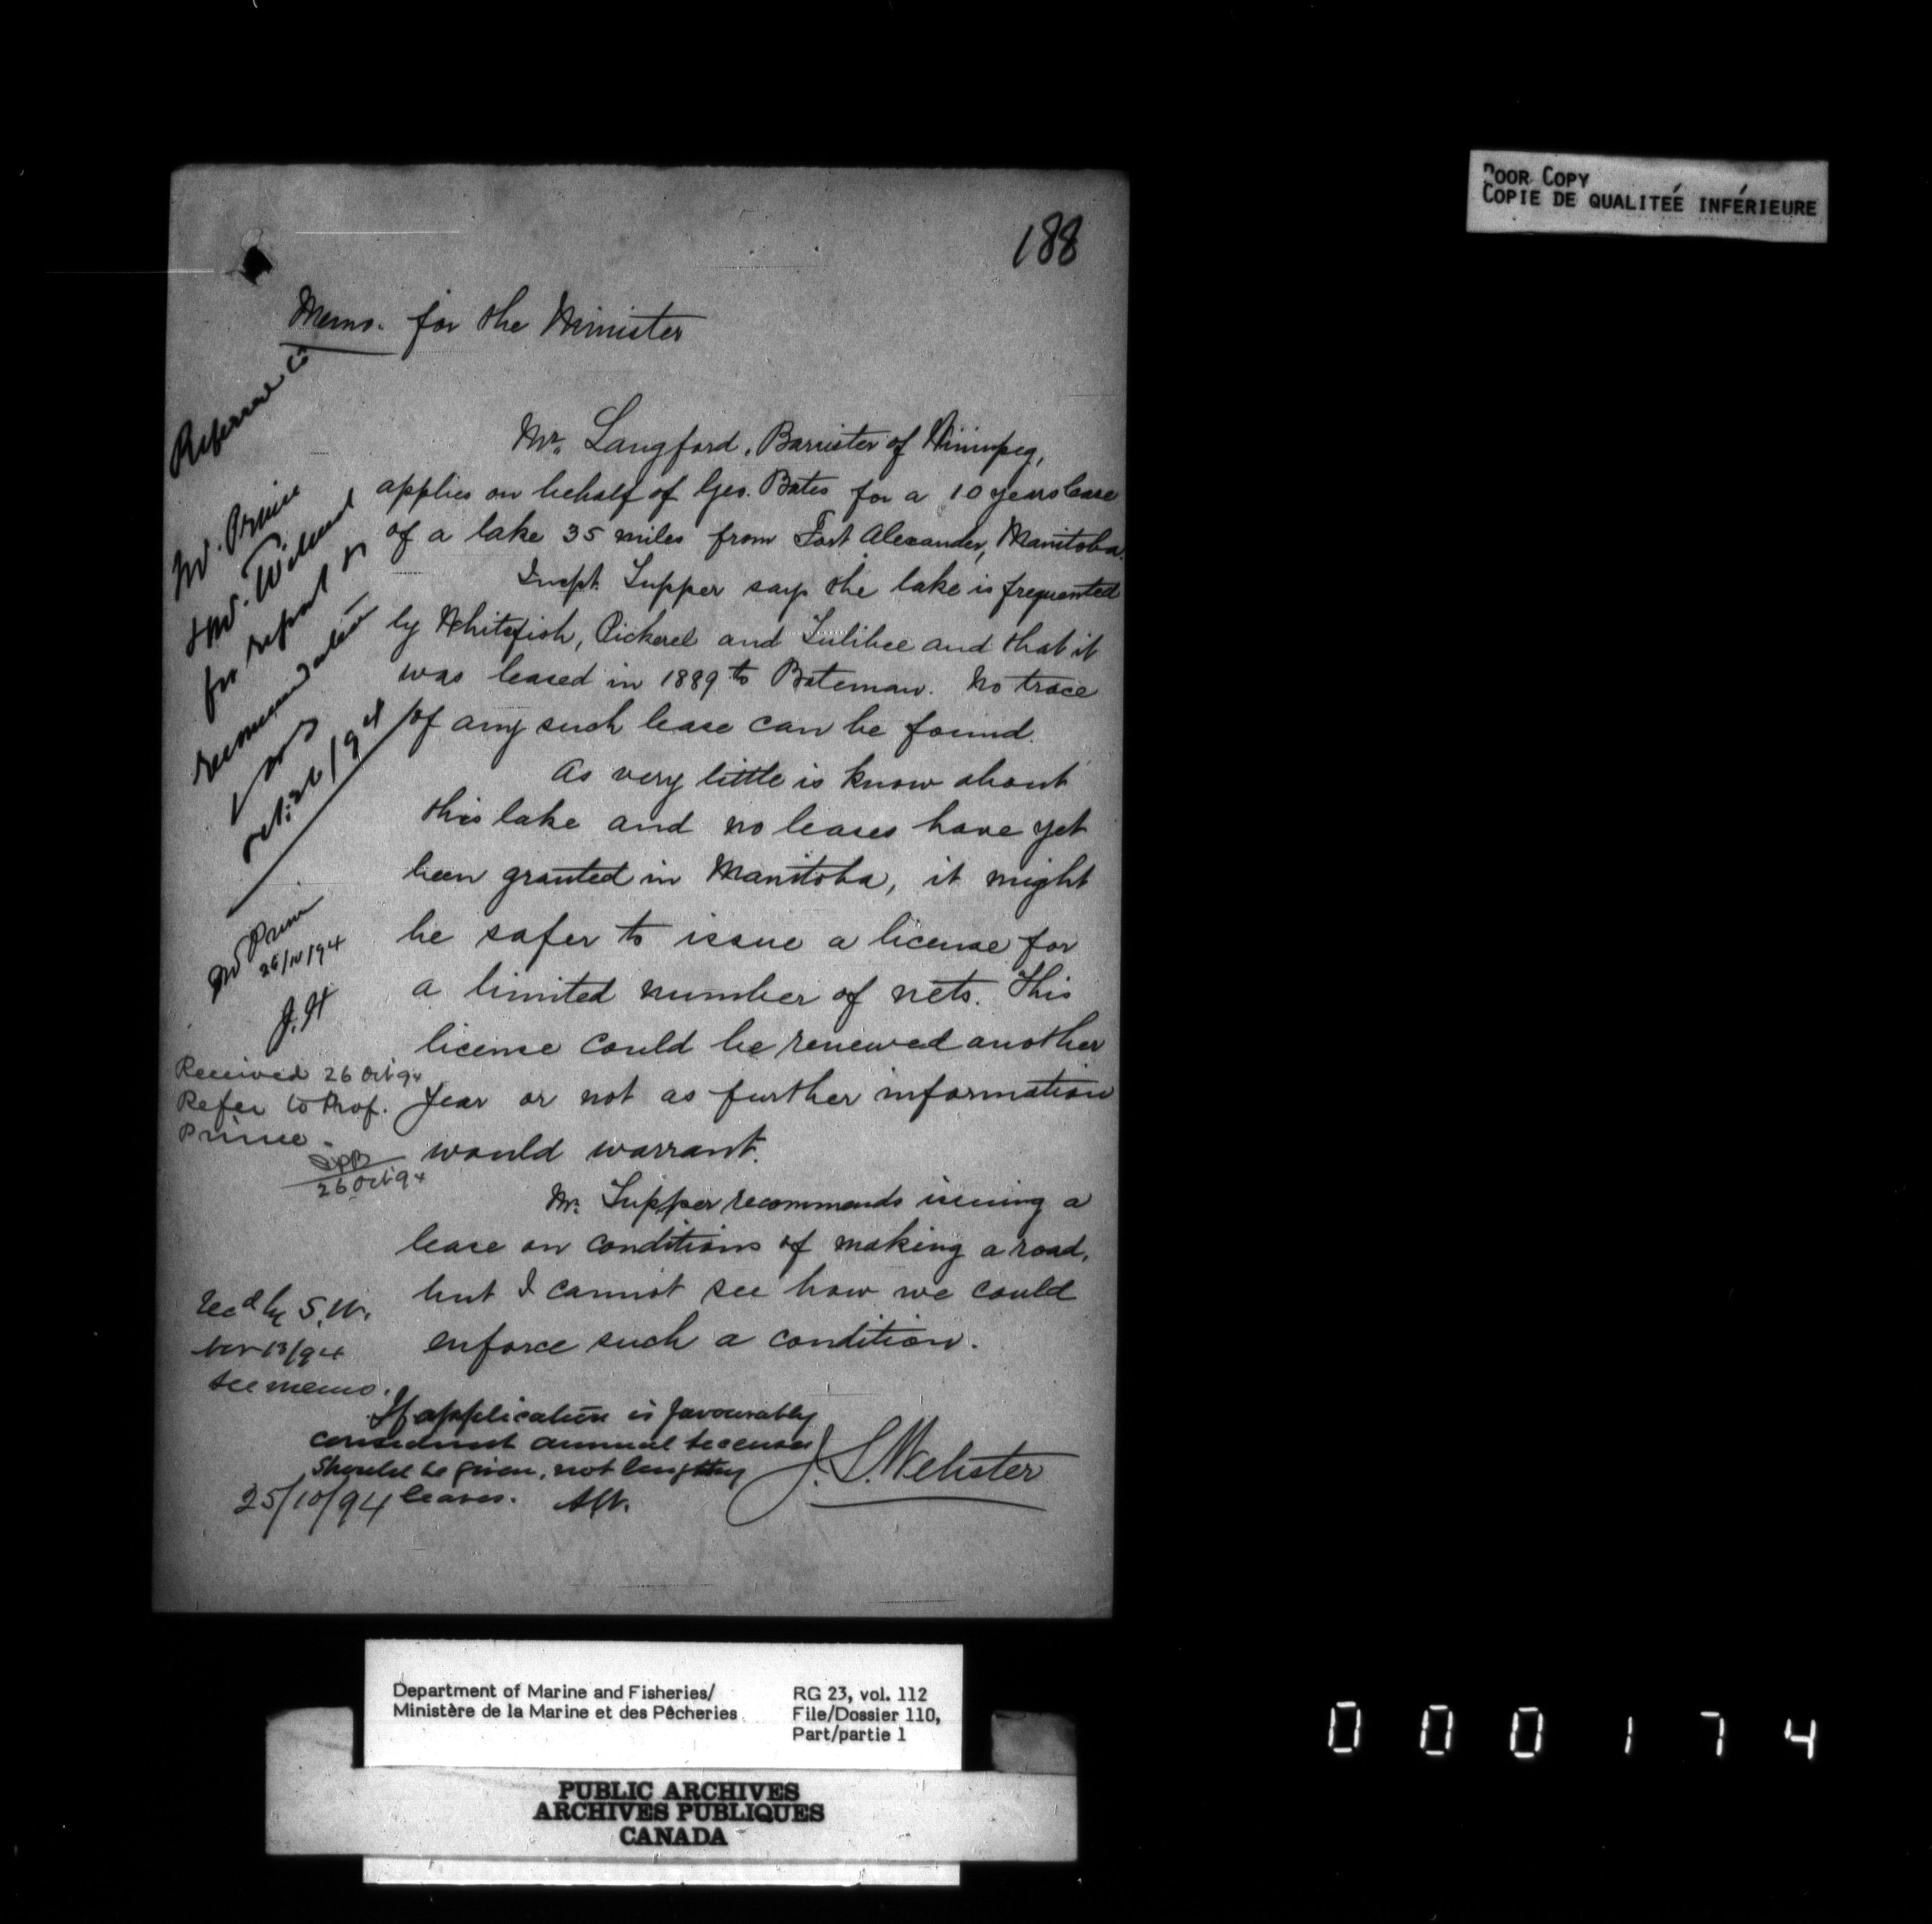 POOR COPY
COPIE DE QUALITEÉ INFÉRIEURE
188
Memo. for the Minister
Referred to
Mr. Prince
& Mr. Wilmot
for report or
recommendation
Oct. 26/94
Mr. Langford, Barrister of Winnipeg,
applies on behalf of Geo. Bates for a 10 years lease
of a lake 35 miles from Fort Alexander, Manitoba.
Inspt. Tupper says the lake is frequented
by Whitefish, Pickerel and Tulibee and that it
was leased in 1889 to Bateman. No trace
of any such lease can be found.
As very little is know about
this lake and no leases have yet
been granted in Manitoba, it might
be safer to issue a license for
a limited number of nets. This
license could be renewed another
year or not as further information
would warrant.
Mr. Tupper recommends issuing a
lease on conditions of making a road,
but I cannot see how we could
enforce such a condition.
Mr Prince
26/10/94
J.H
Received 26 Oct 94
Refer to Prof.
Prince.
26 Oct 94
Recd by S.W.
Nov 13/94
See memo.
If application is favourably
considered annual licenses
should be given, not lengthy
leases.
25/10/94
J. S. Webster
Department of Marine and Fisheries/
Ministère de la Marine et des Pêcheries
RG 23, vol. 112
File/Dossier 110,
Part/partie 1
PUBLIC ARCHIVES
ARCHIVES PUBLIQUES
CANADA
000174